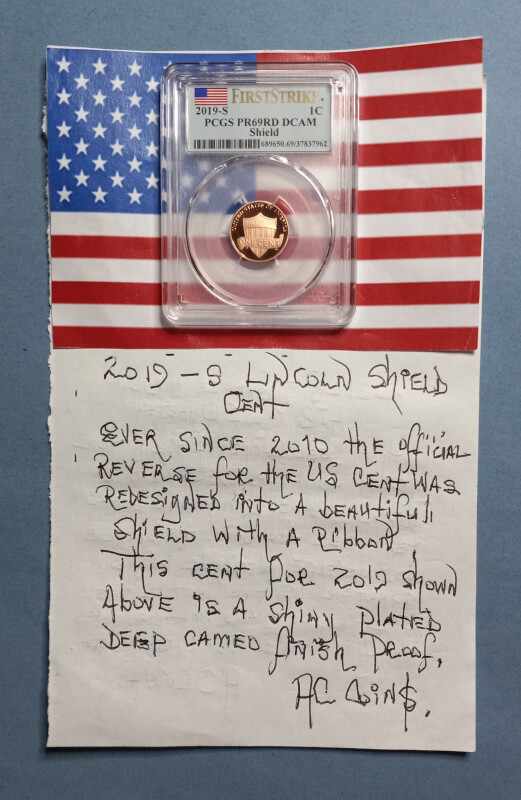 FIRSTSTRIKE®
2019-S 1C
PCGS PR69RD DCAM
Shield
689650.69/37837962
UNITED STATES OF AMERICA
ONE CENT
2019-S LINCOLN SHIELD
CENT
EVER SINCE 2010 the official
REVERSE for the US CENT WAS
REDESIGNED into A beautifull
SHIELD With A RIBBON
This cent for 2019 shown
Above is A Shiny PLATED
DEEP CAMEO finish PROOF.
AC Coin$.